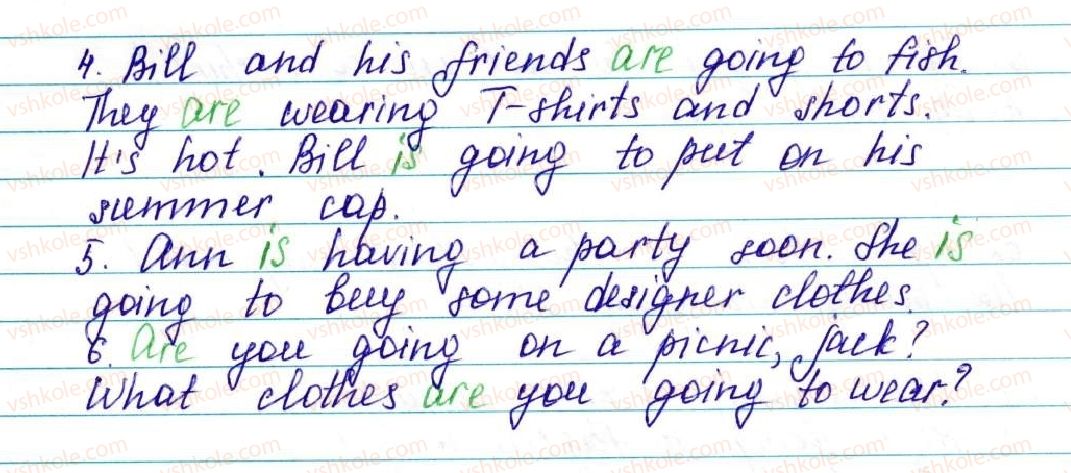 4. Bill and his friends are going to fish.
They are wearing T-shirts and shorts.
It's hot. Bill is going to put on his
summer cap.
5. Ann is having a party soon. She is
going to buy some designer clothes.
6. Are you going on a picnic, Jack?
What clothes are you going to wear?